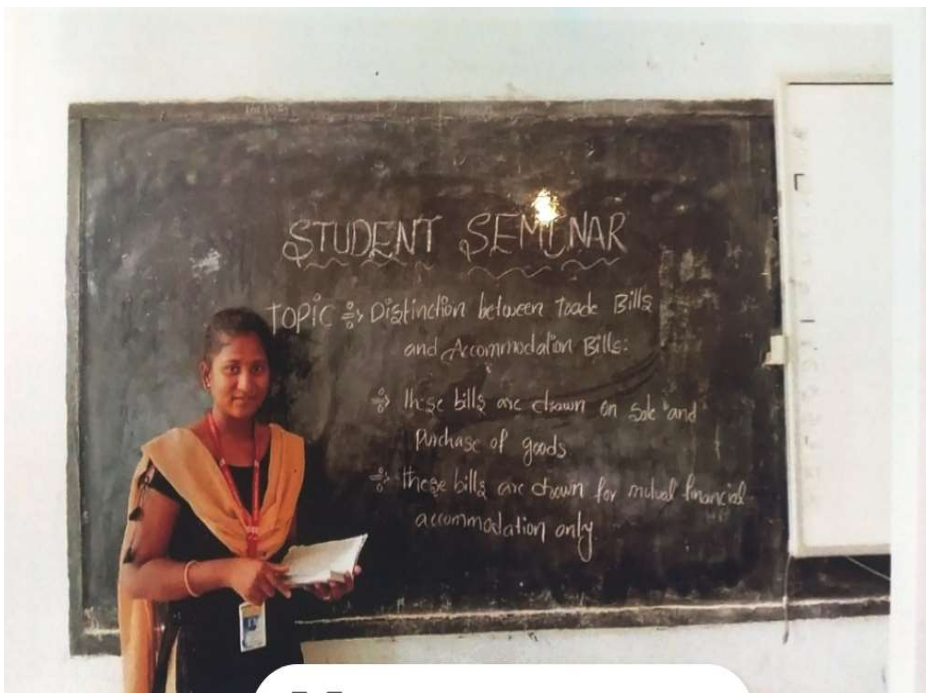 STUDENT SEMINAR
TOPIC ÷, Distinction between Trade Bills
and Accommodation Bills:
÷, These bills are drawn on Sale and
Purchase of goods
÷, these bills are drawn for mutual financial
accommodation only.